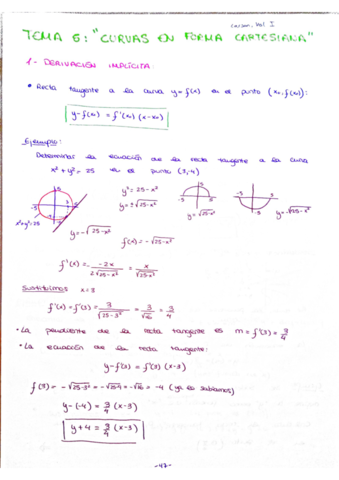 TEMA 6: "CURVAS EN FORMA CARTESIANA"
1- DERIVACIÓN IMPLÍCITA
• Recta tangente a la curva y=f(x) en el punto (x₀, f(x₀)):
y-f(x₀) = f'(x₀)(x-x₀)
Ejemplo:
Determinar la ecuación de la recta tangente a la curva
x²+y²=25 en el punto (3,4)
y²=25-x²
y=±√25-x²
y=√25-x²
y=-√25-x²
x²+y²=25
5
-5
5
-5
5
-5
5
-5
5
y=-√25-x²
f(x)=-√25-x²
f'(x) = -2x / 2√25-x² = x / √25-x²
Sustituimos x=3
f'(x)=f'(3) = 3/√25-3² = 3/√16 = 3/4
• La pendiente de la recta tangente es m=f'(3)=3/4
• La ecuación de la recta tangente:
y-f(3) = f'(3)(x-3)
f(3) = -√25-3² = -√25-9 = -√16 = -4 (ya lo sabíamos)
y-(-4) = 3/4 (x-3)
y+4 = 3/4 (x-3)
-47-